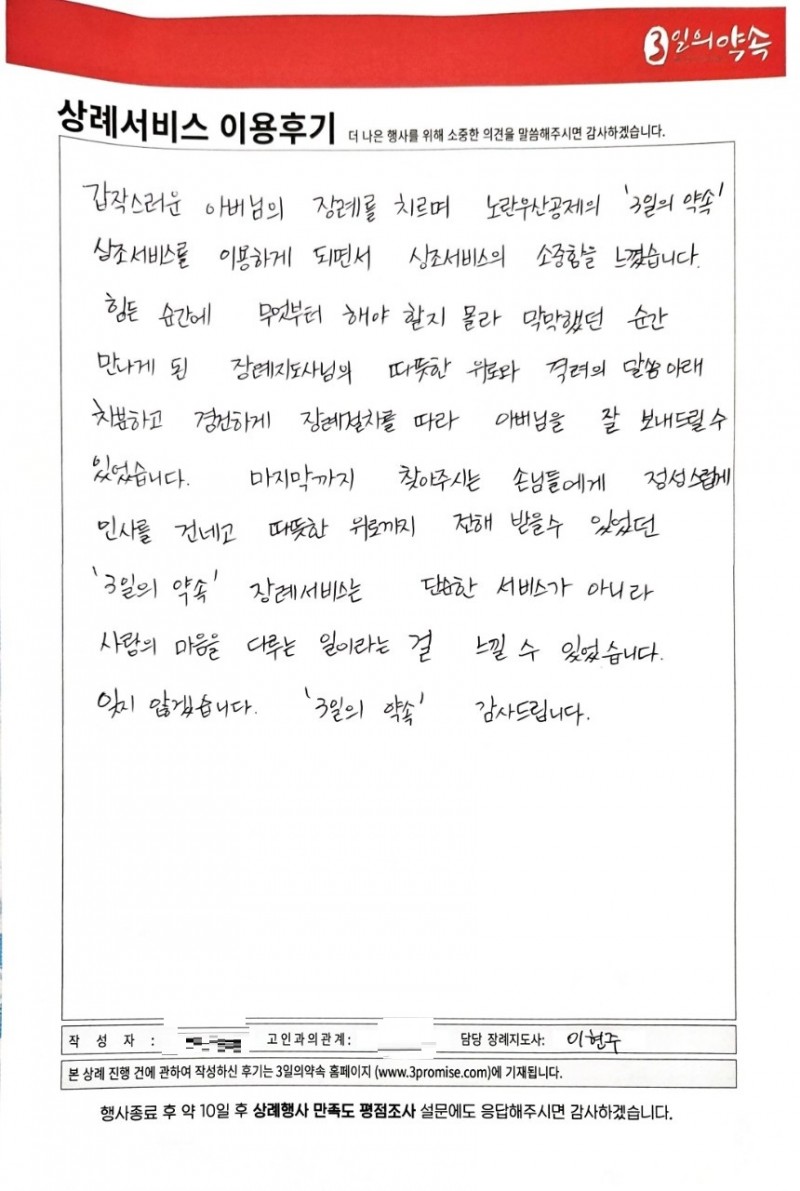 3일의약속
상례서비스 이용후기 더 나은 행사를 위해 소중한 의견을 말씀해주시면 감사하겠습니다.
갑작스러운 아버님의 장례를 치르며 노란우산공제의 '3일의 약속'
상조서비스를 이용하게 되면서 상조서비스의 소중함을 느꼈습니다.
힘든 순간에 무엇부터 해야 할지 몰라 막막했던 순간
만나게 된 장례지도사님의 따뜻한 위로와 격려의 말씀 아래
차분하고 경건하게 장례절차를 따라 아버님을 잘 보내드릴 수
있었습니다. 마지막까지 찾아주시는 손님들에게 정성스럽게
인사를 건네고 따뜻한 위로까지 전해 받을수 있었던
'3일의 약속' 장례서비스는 단순한 서비스가 아니라
사람의 마음을 다루는 일이라는 걸 느낄 수 있었습니다.
잊지 않겠습니다. '3일의 약속' 감사드립니다.
작 성 자 : 고인과의관계: 담당 장례지도사: 이현주
본 상례 진행 건에 관하여 작성하신 후기는 3일의약속 홈페이지 (www.3promise.com)에 기재됩니다.
행사종료 후 약 10일 후 상례행사 만족도 평점조사 설문에도 응답해주시면 감사하겠습니다.